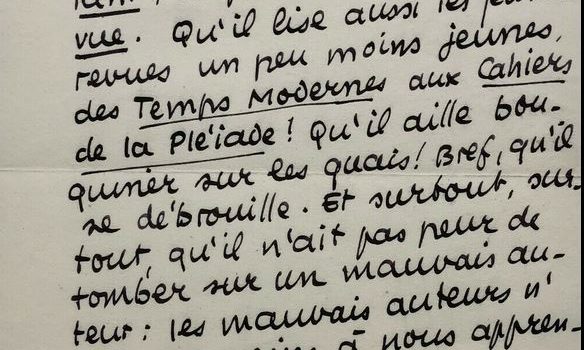 vue. Qu'il lise aussi les jeu
revues un peu moins jeunes,
des Temps Modernes aux Cahiers
de la Pléiade ! Qu'il aille bou-
quiner sur les quais ! Bref, qu'il
se débrouille. Et surtout, sur-
tout, qu'il n'ait pas peur de
tomber sur un mauvais au-
teur : les mauvais auteurs n'
à nous appren-